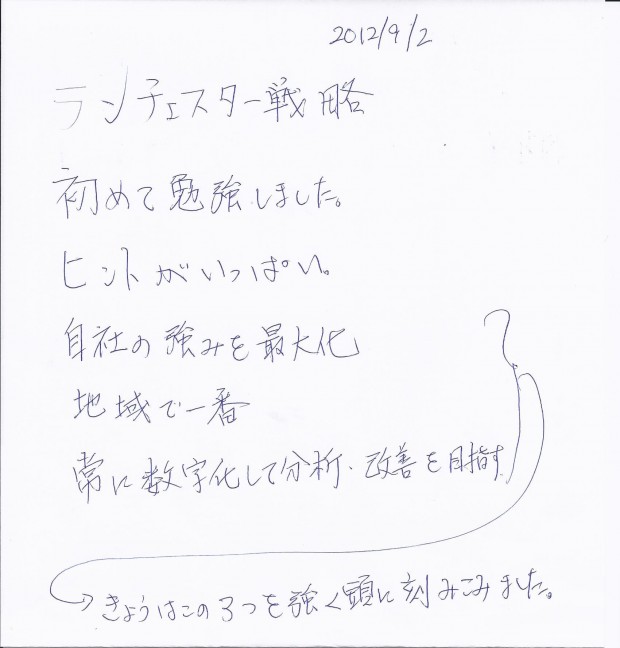 2012/9/2
ランチェスター戦略
初めて勉強しました。
ヒントがいっぱい。
自社の強みを最大化
地域で一番
常に数字化して分析・改善を目指す
きょうはこの3つを強く頭に刻みこみました。